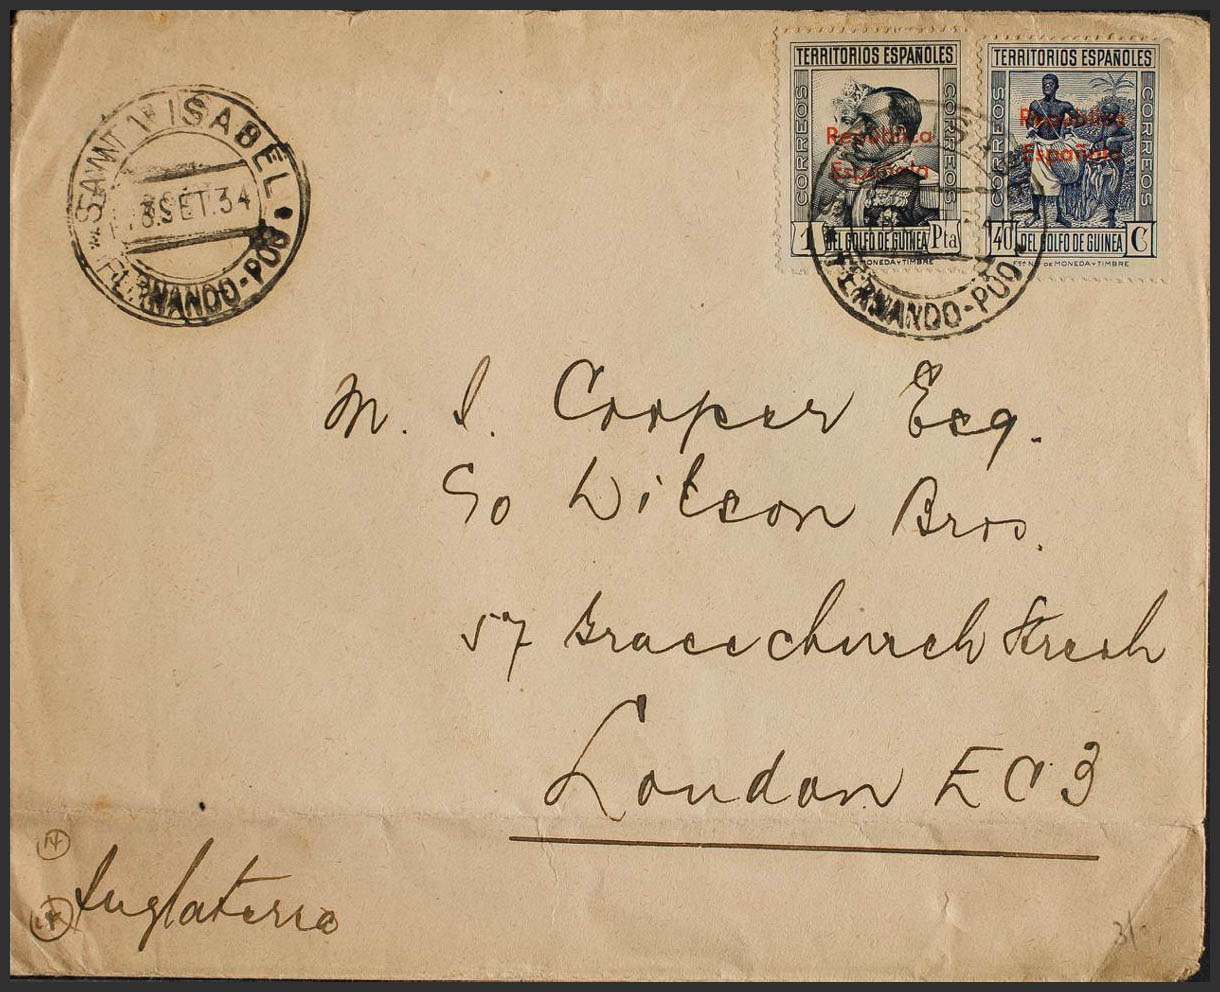 SANTA ISABEL
13.SET.34
FERNANDO-POO
TERRITORIOS ESPAÑOLES
CORREOS
CORREOS
República
Española
1 DEL GOLFO DE GUINEA Pta
MONEDA Y TIMBRE
TERRITORIOS ESPAÑOLES
CORREOS
CORREOS
República
Española
40 DEL GOLFO DE GUINEA C
DE MONEDA Y TIMBRE
FERNANDO-POO
M. I. Cooper Esq.
c/o Wilson Bros.
57 Gracechurch Street
London EC3
Inglaterra
3/-